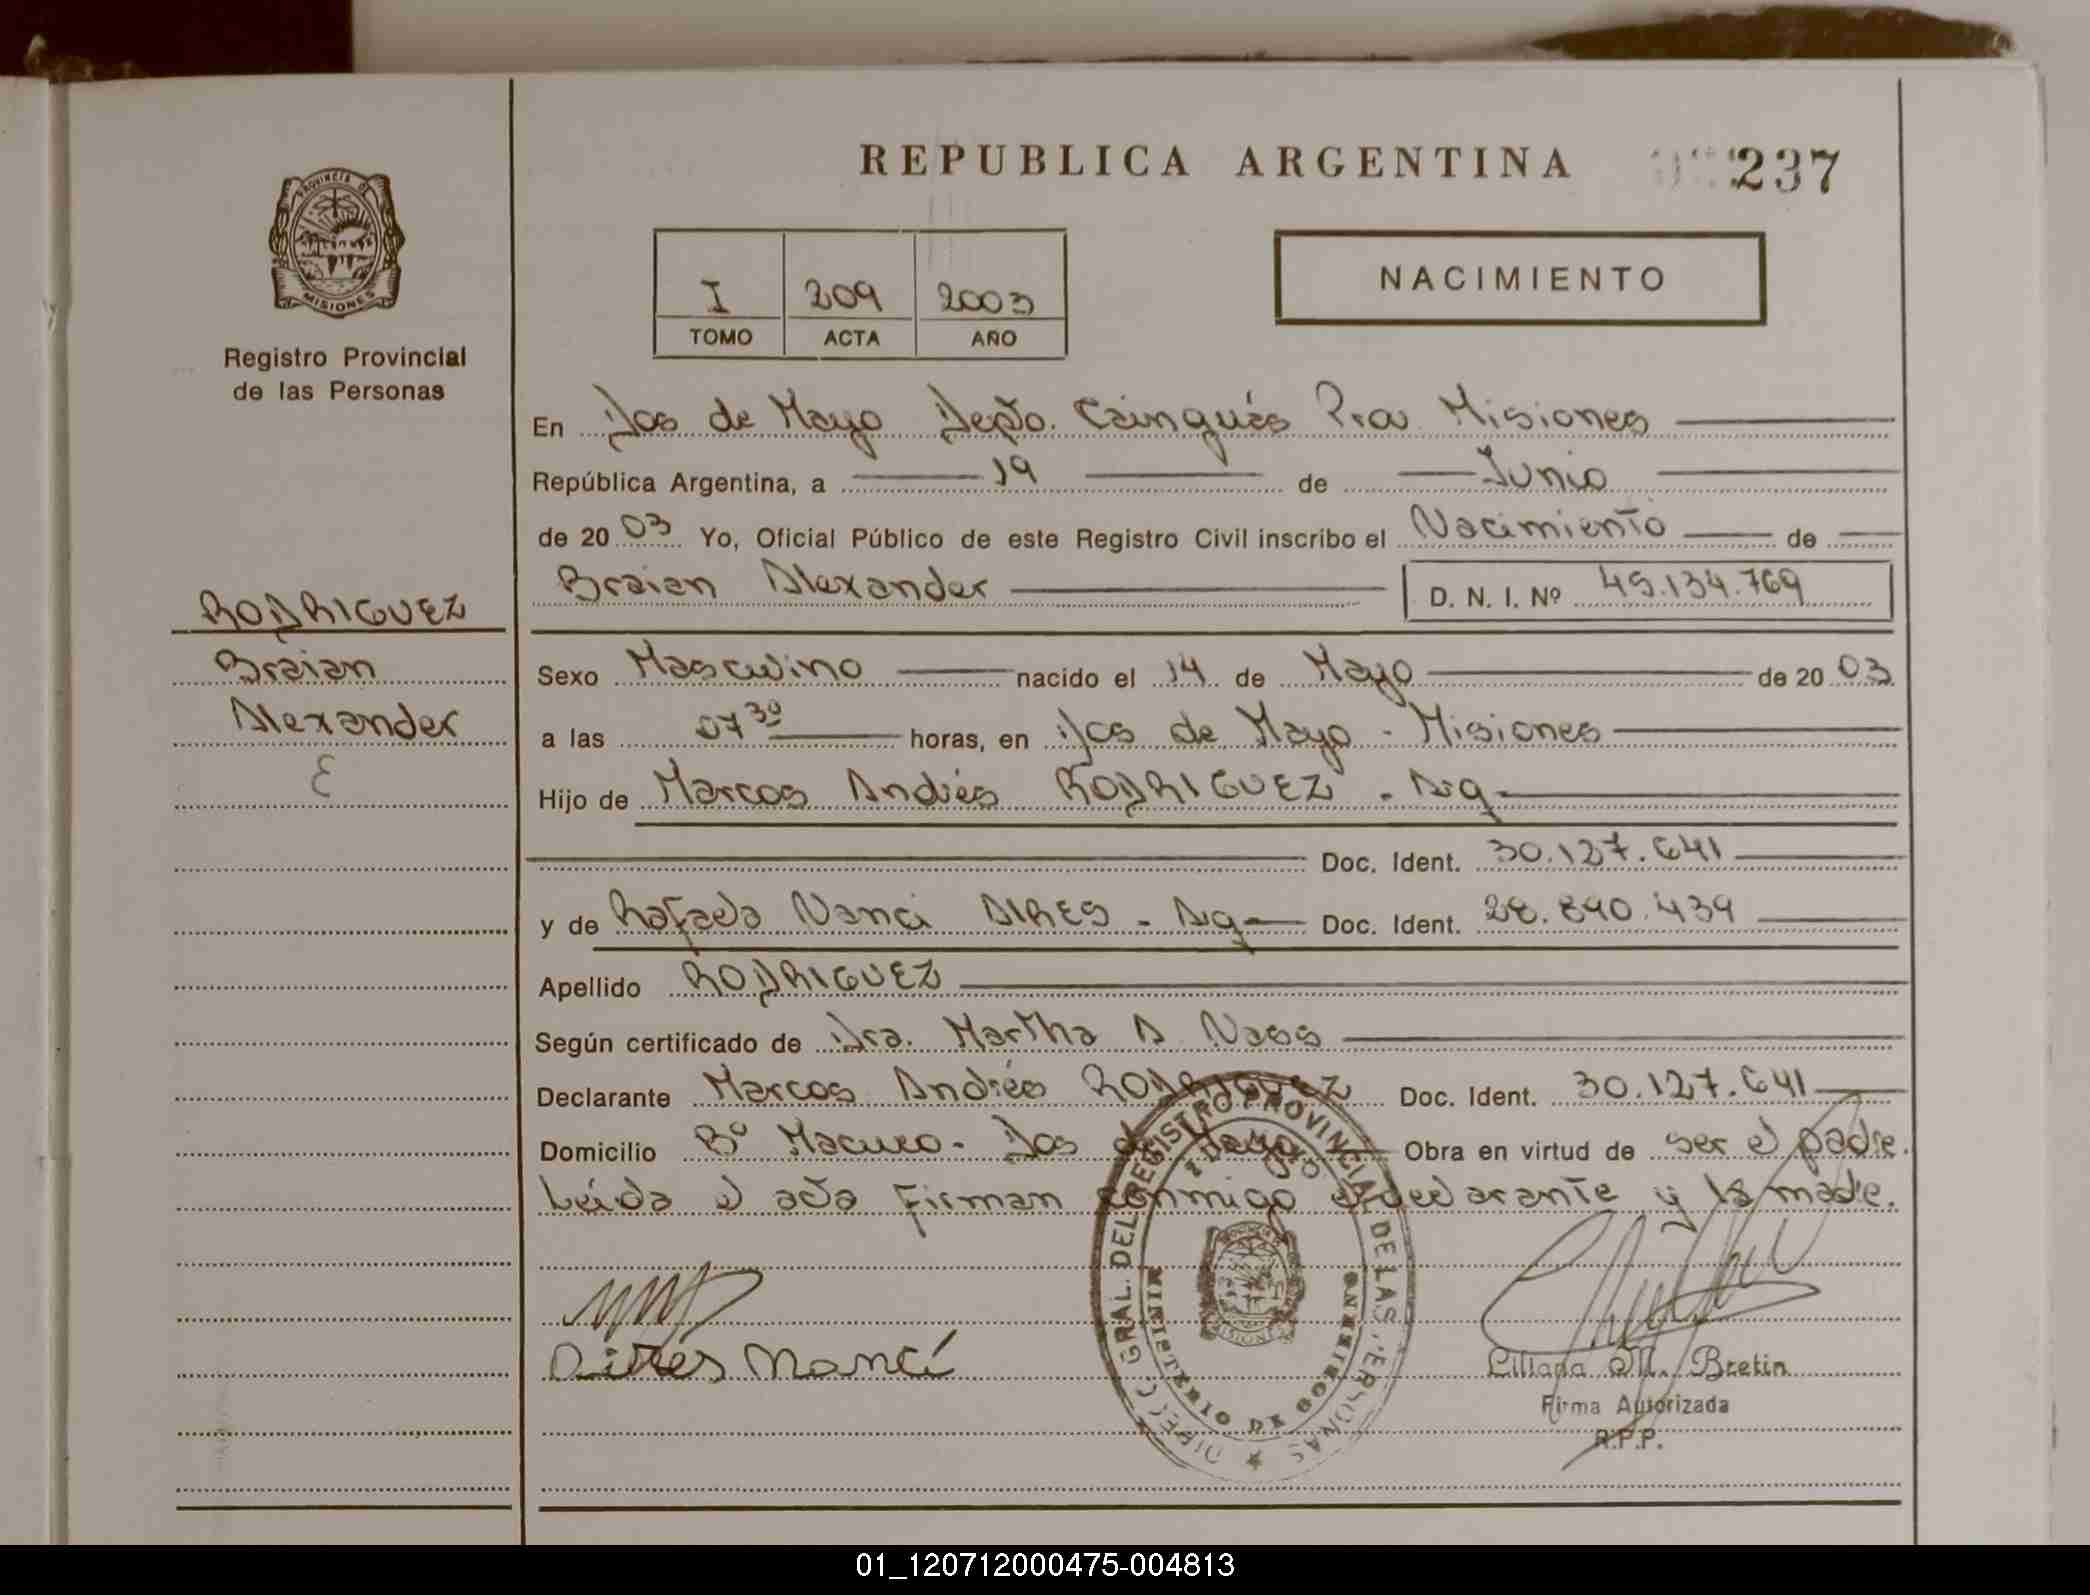 REPUBLICA ARGENTINA
237
PROVINCIA DE
MISIONES
Registro Provincial
de las Personas
I 209 2003
TOMO ACTA AÑO
NACIMIENTO
En Dos de Mayo Depto. Cainguás Pcia Misiones
República Argentina, a 19 de Junio
de 2003 Yo, Oficial Público de este Registro Civil inscribo el Nacimiento de
Braian Alexander D. N. I. Nº 45.134.769
RODRIGUEZ
Braian
Alexander
Sexo Masculino nacido el 14 de Mayo de 2003
a las 07 30 horas, en Dos de Mayo - Misiones
Hijo de Marcos Andrés RODRIGUEZ - Arg
Doc. Ident. 30.127.641
y de Rafaela Nanci AIRES - Arg Doc. Ident. 28.890.439
Apellido RODRIGUEZ
Según certificado de Dra. Martha A Nass
Declarante Marcos Andrés RODRIGUEZ Doc. Ident. 30.127.641
Domicilio Bº Macuco - Dos de Mayo Obra en virtud de ser el padre.
Leída el acta firman conmigo el declarante y la madre.
DIRECC. GRAL. DEL REGISTRO PROVINCIAL DE LAS PERSONAS
2 DE MAYO
MINISTERIO DE GOBIERNO
MISIONES
Aires Nanci
Liliana M. Bretin
Firma Autorizada
R.P.P.
01_120712000475-004813